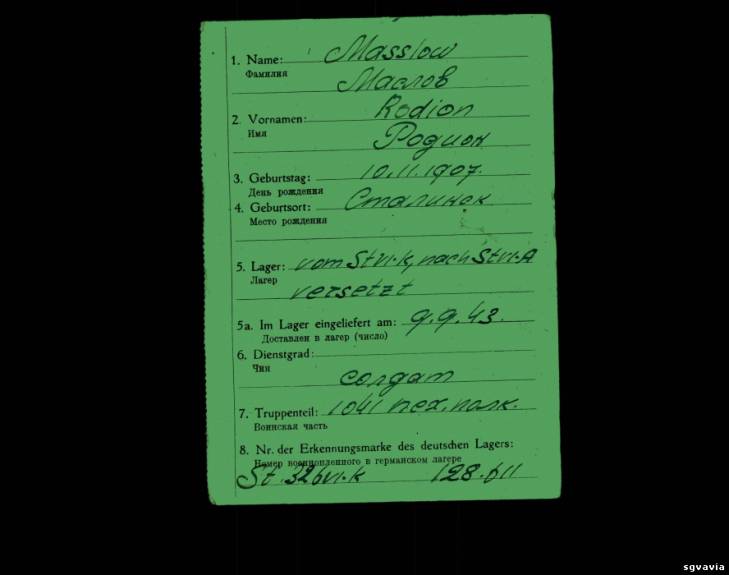 1. Name: Masslow
Фамилия
Маслов
Rodion
2. Vornamen:
Имя
Родион
3. Geburtstag: 10.11.1907.
День рождения
4. Geburtsort: Сталинск
Место рождения
5. Lager: vom St VI-K, nach St VI-A
Лагер
versetzt
5a. Im Lager eingeliefert am: 9.9.43.
Доставлен в лагер (число)
6. Dienstgrad:
Чин
солдат
7. Truppenteil: 1041 пех. полк.
Воинская часть
8. Nr. der Erkennungsmarke des deutschen Lagers:
Номер военнопленного в германском лагере
St. 326 VI-K 128.611
sgvavia